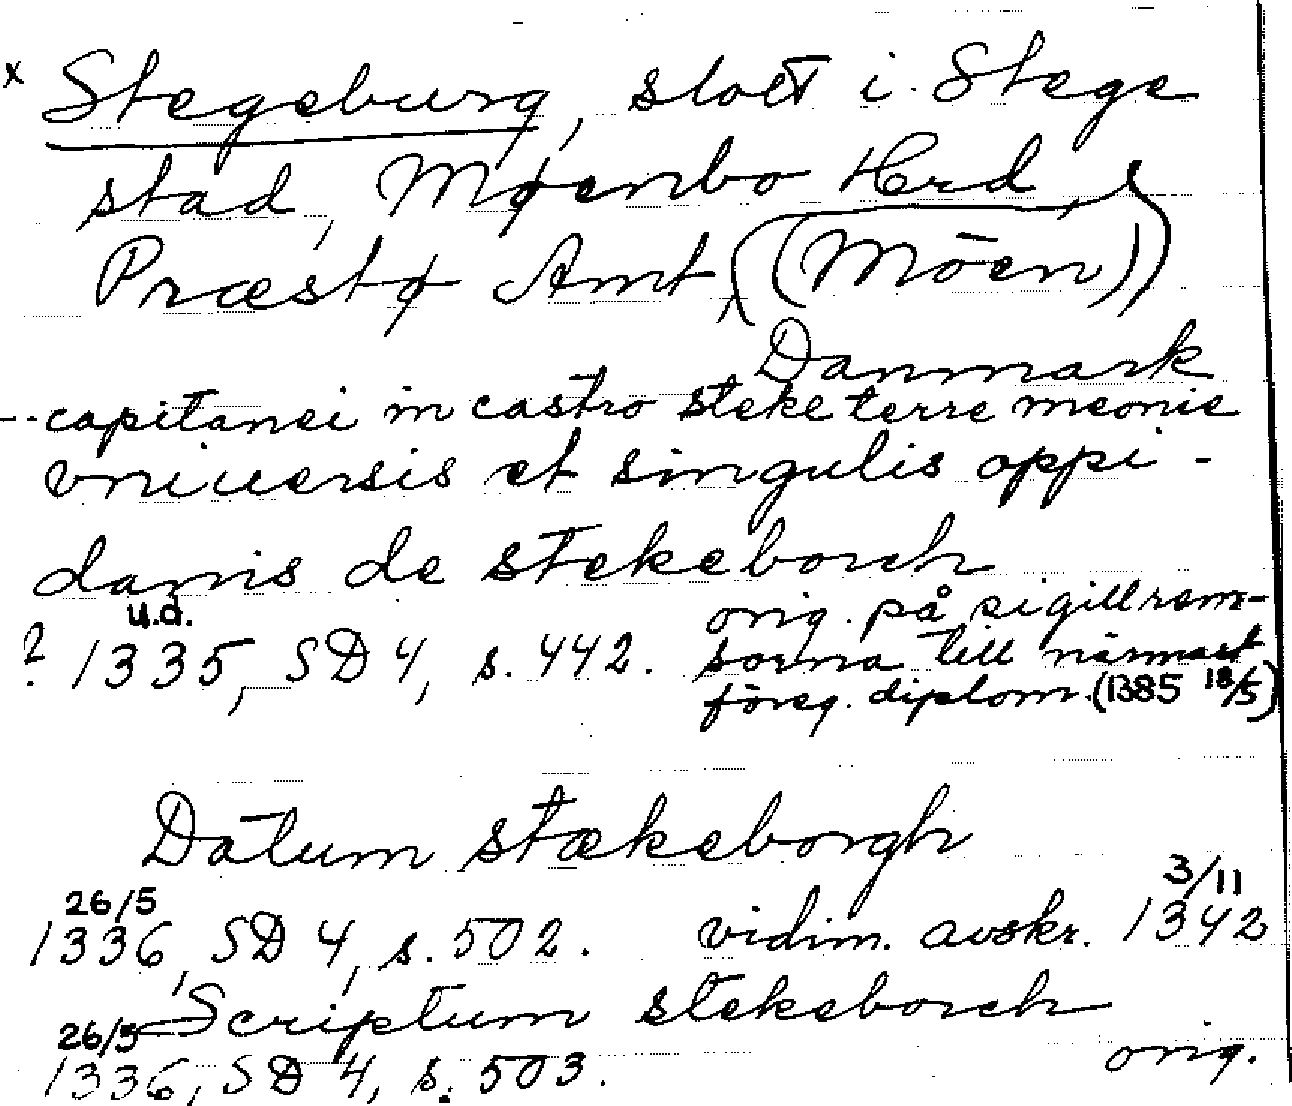 x Stegeburg, slott i Stege
stad, Møenbo Herd,
Præstø Amt, ((Möen))
Danmark
--capitanei in castro steke terre meonie
vniuersis et singulis oppi-
danis de stekeborch
u.d.
? 1335, SD 4, s. 442. orig. på sigillrem-
sorna till närmast
föreg. diplom. (1385 18/5)
Datum stækeborgh
26/5 3/11
1336, SD 4, s. 502. vidim. avskr. 1342
Scriptum stekeborch
26/5 orig.
1336, SD 4, s. 503.